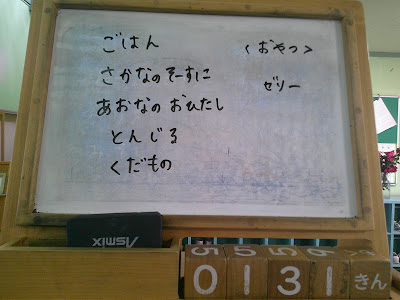 ごはん
さかなのそーすに
あおなの おひたし
とんじる
くだもの
<おやつ>
ゼリー
Asmix
0131きん